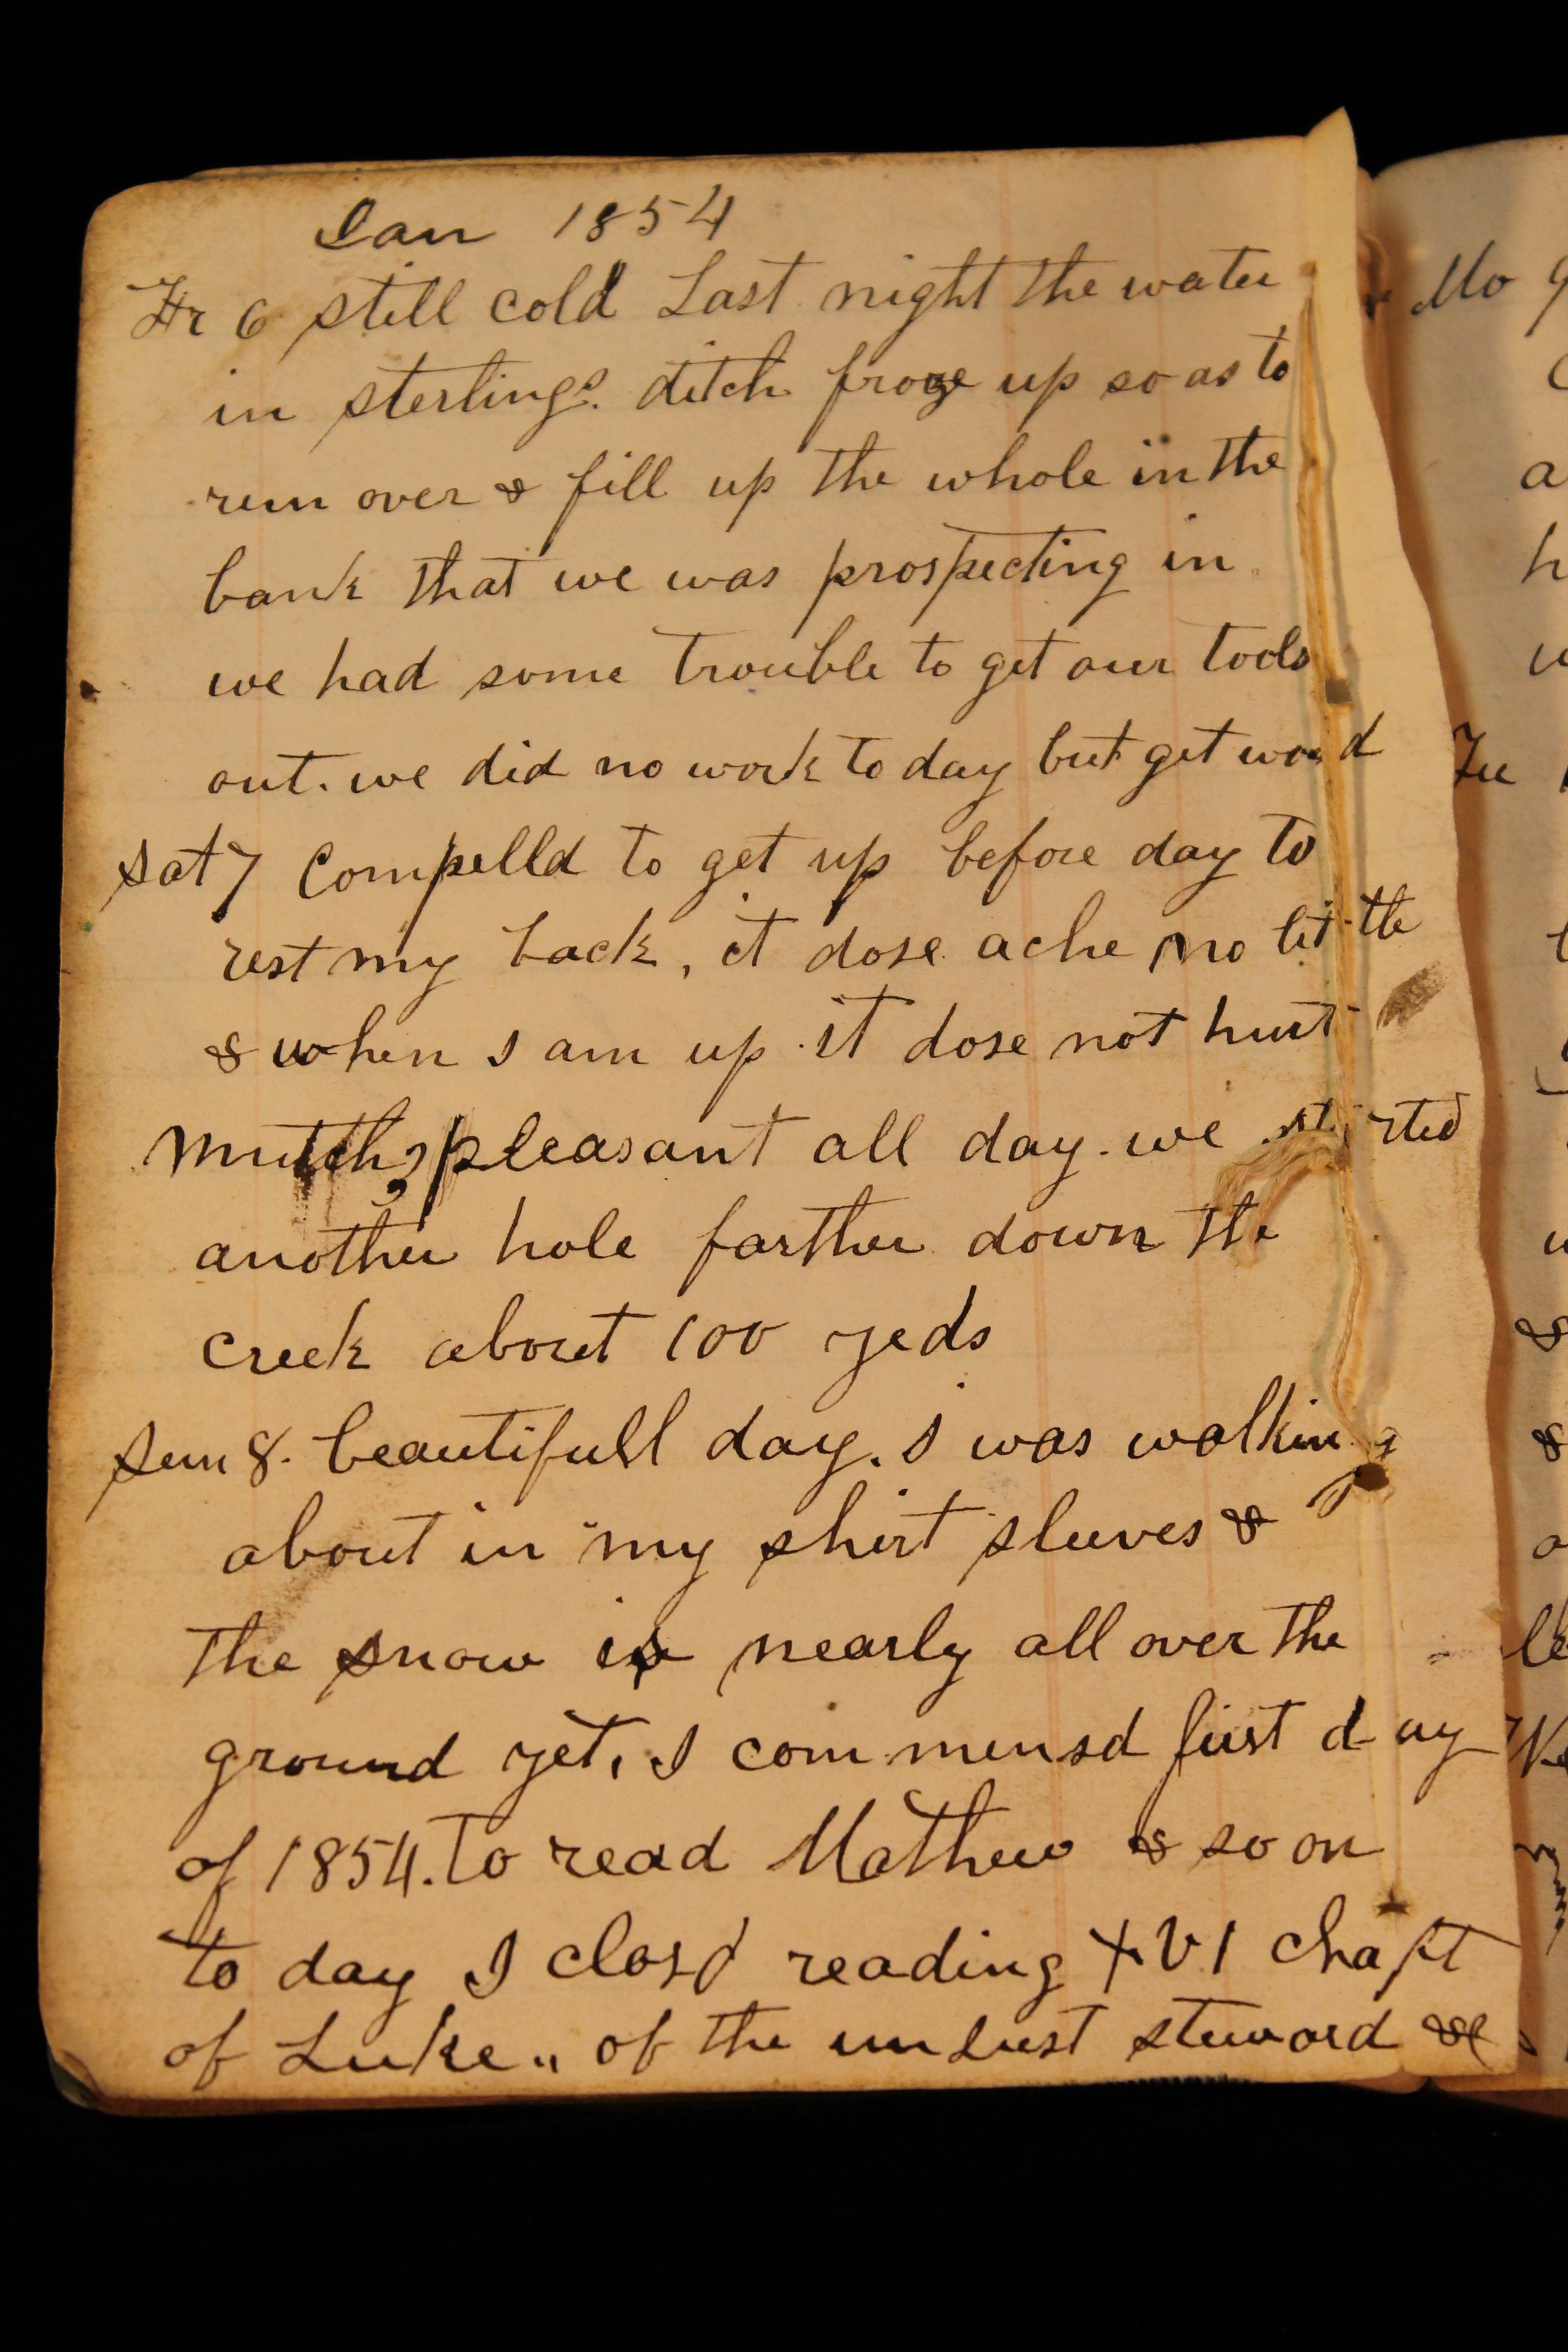 Jan 1854
Fr 6 still cold Last night the water
in sterlings. ditch froze up so as to
run over & fill up the whole in the
bank that we was prospecting in
we had some trouble to get our tools
out. we did no work to day but get wood
Sat 7 Compelld to get up before day to
rest my back, it dose ache no little
& when I am up it dose not hurt
mutch, pleasant all day. we started
another hole farther down the
creek about 100 yeds
Sun 8. beautifull day. I was walking
about in my shirt sleeves &
the snow is nearly all over the
ground yet, I commensd first day
of 1854. to read Mathew & so on
to day I closd reading XVI Chapt
of Luke „ of the unJust steward &c
Mo 9
a
h
w
Tu
&
&
le
We